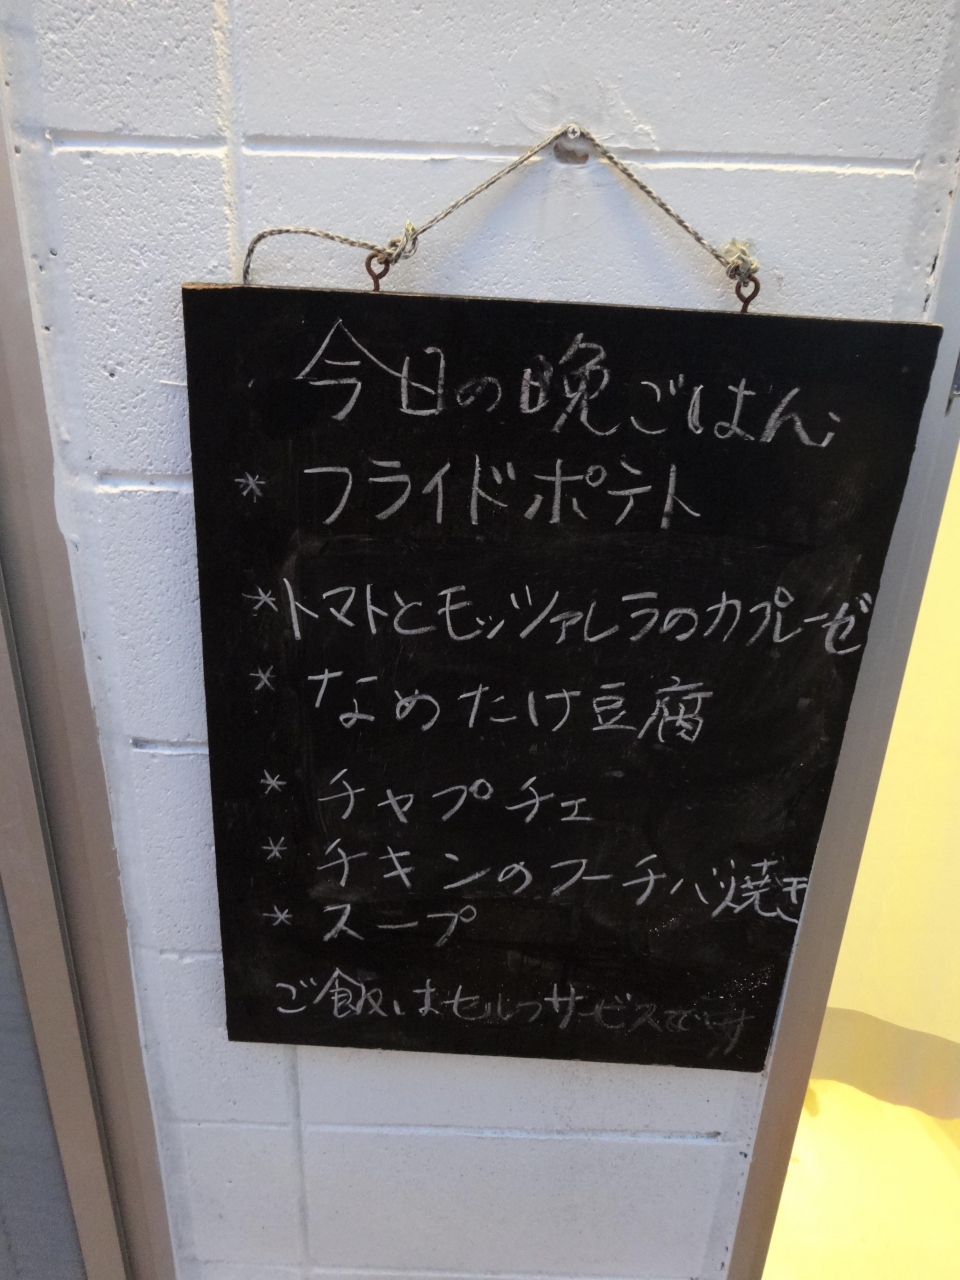 今日の晩ごはん
* フライドポテト
* トマトとモッツァレラのカプレーゼ
* なめたけ豆腐
* チャプチェ
* チキンのフーチバ焼き
* スープ
ご飯はセルフサービスです